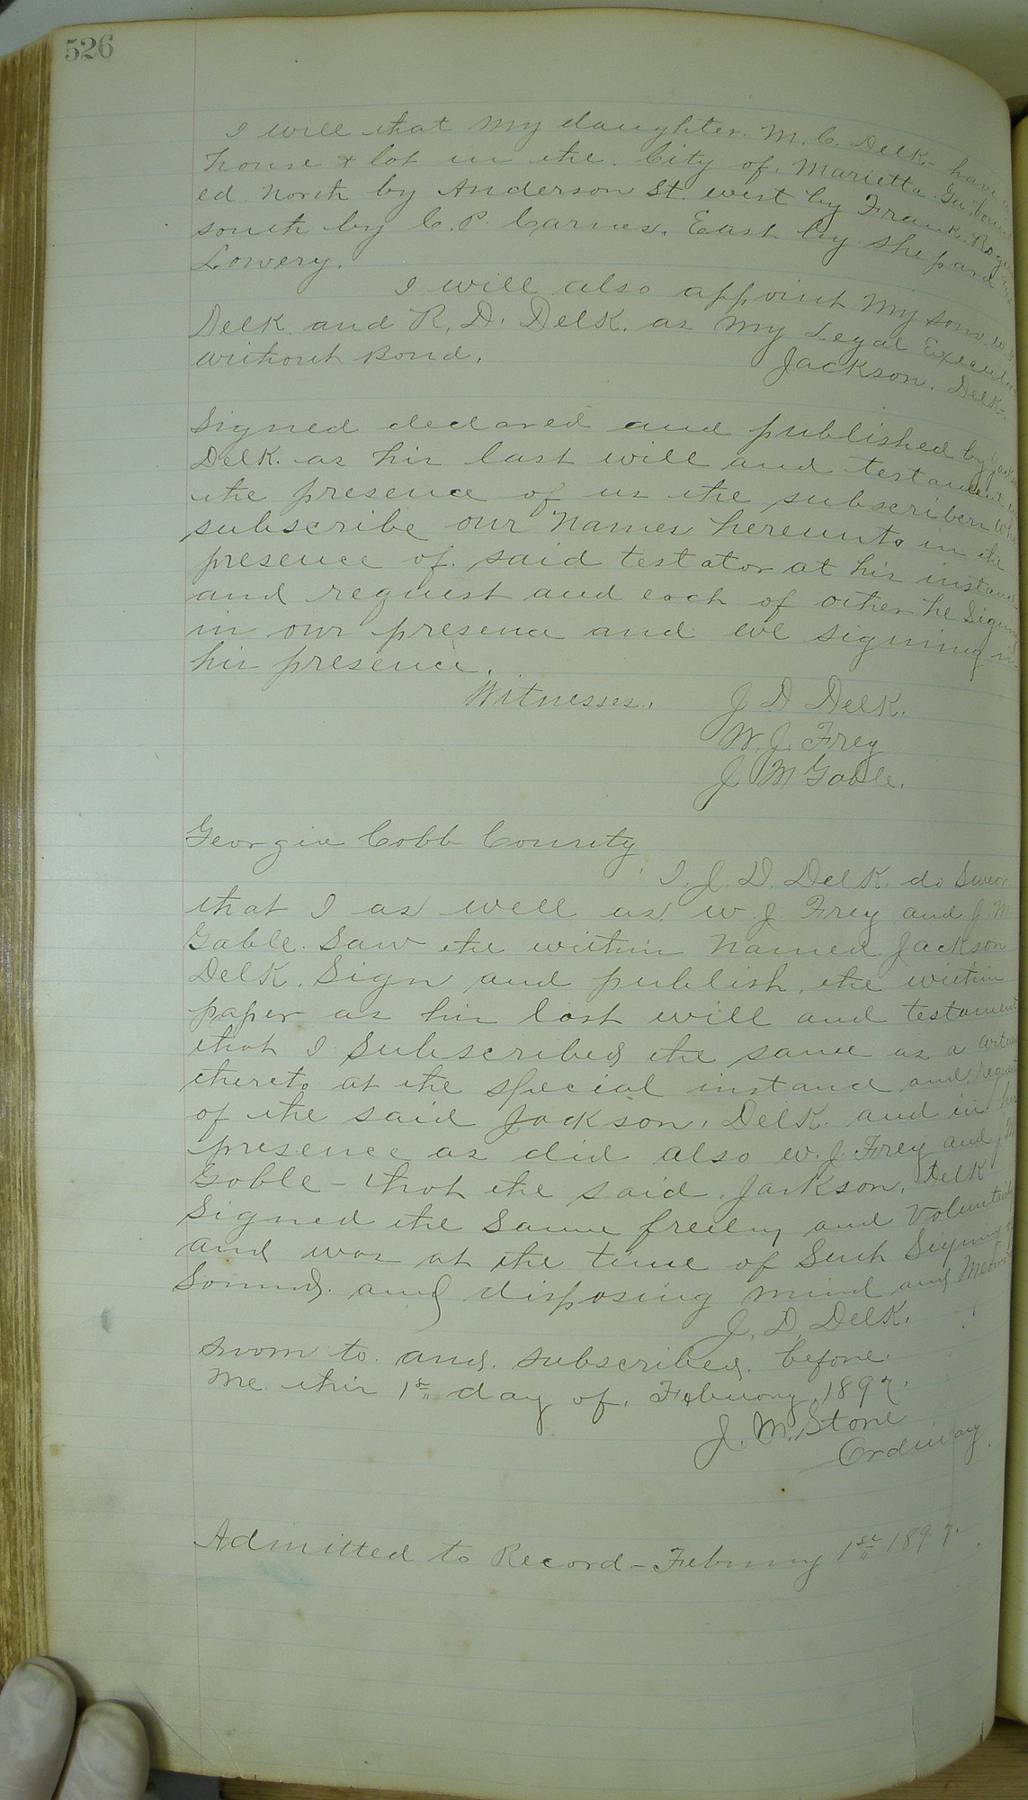 526
I will that my daughter. M. C. Delk- have
house & lot in the. City of. Marietta Ga. boun
ed North by Anderson St. west by Frank. Roger
south by C. P. Carnes. East by Shepard
Lowery.
I will also appoint My sons W
Delk. and R. D. Delk. as My Legal Executors
without Bond.
Jackson. Delk-
Signed declared and published by Jack
Delk. as his last will and testament
the presence of us the subscribers who
subscribe our Names hereunto in the
presence of. said testator at his instance
and request and each of other he Signing
in our presence and we signing in
his presence.
Witnesses.
J D Delk.
W. J. Frey
J M Gable.
Georgia Cobb County
I. J. D. Delk. do Swear
that I as well as W J Frey and J. M
Gable. Saw the within Named Jackson
Delk. Sign and publish. the within
paper as his last will and testament
that I Subscribed the same as a witness
thereto at the special instance and request
of the said Jackson. Delk. and in his
presence as did also W. J. Frey and J M
Gable - that the said. Jackson. Delk
Signed the Same freely and Voluntarily
and was at the time of Such Signing
Sound. and disposing mind and Memory
J. D. Delk.
Sworn to. and. subscribed. before.
Me this 1st day of. February. 1897.
J. M. Stone
Ordinary.
Admitted to Record - February 1st 1897.